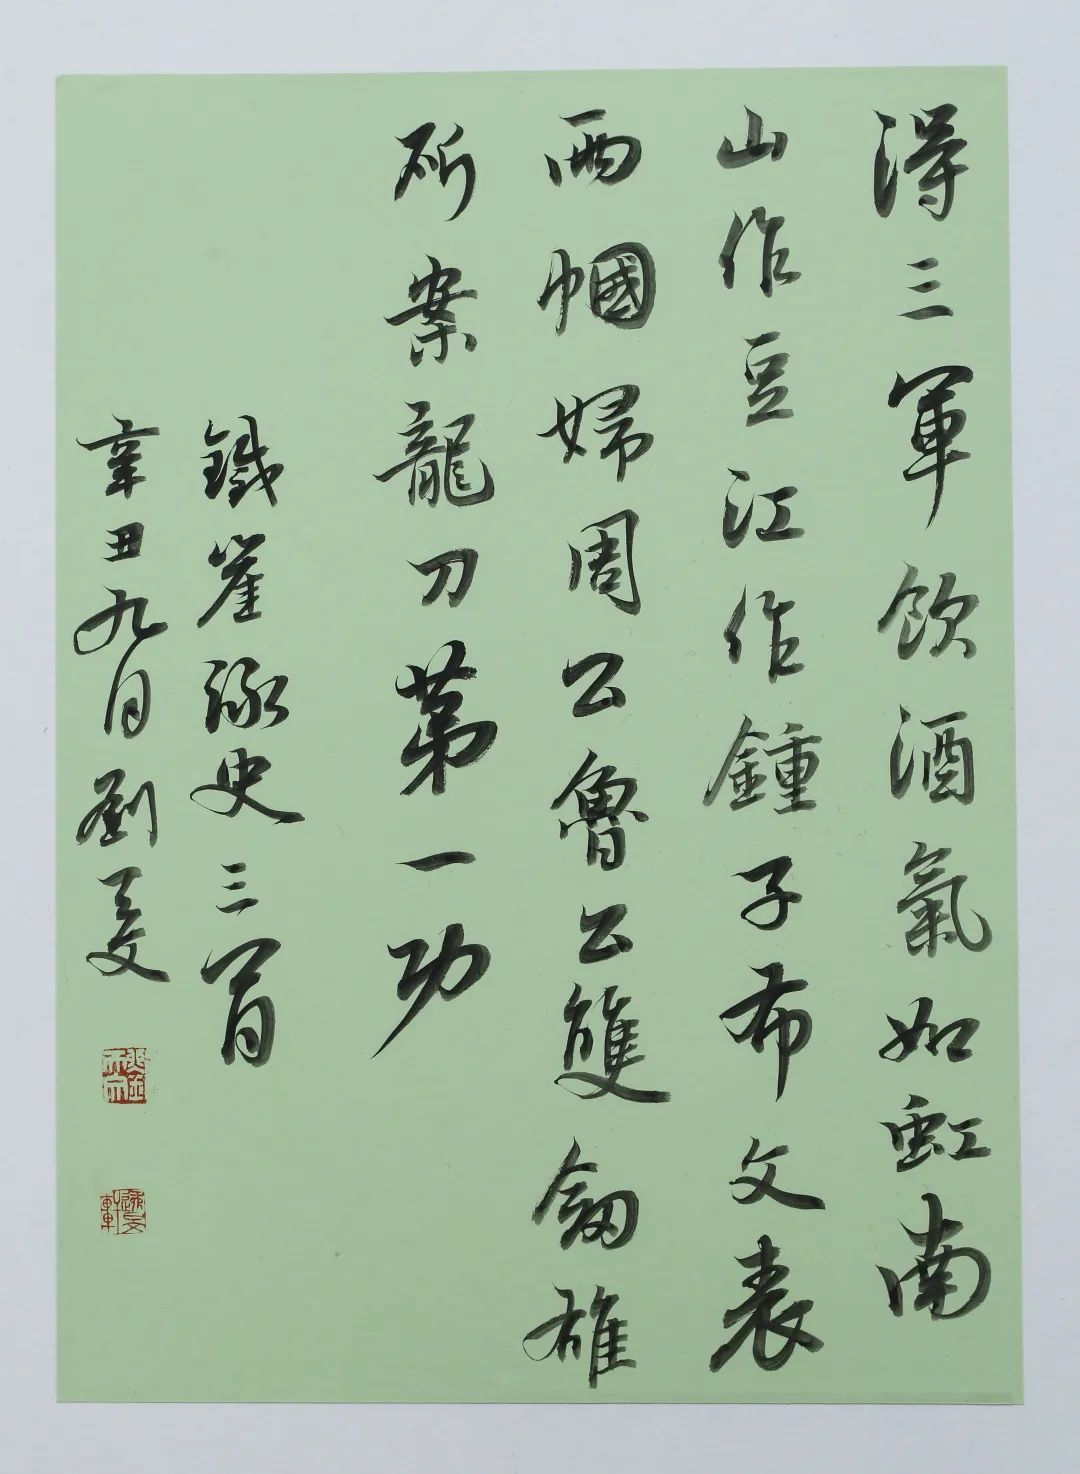 得三軍飲酒氣如虹南
山作豆江作鍾子布文表
兩幗婦周公魯公雙劍雄
斫案龍刀第一功
鐵崖詠史三首
辛丑九月劉文